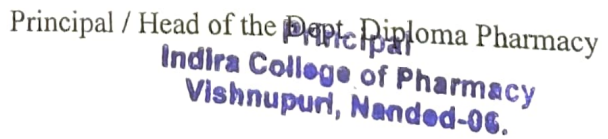 Principal / Head of the Dept. Diploma Pharmacy
Principal
Indira College of Pharmacy
Vishnupuri, Nanded-06.